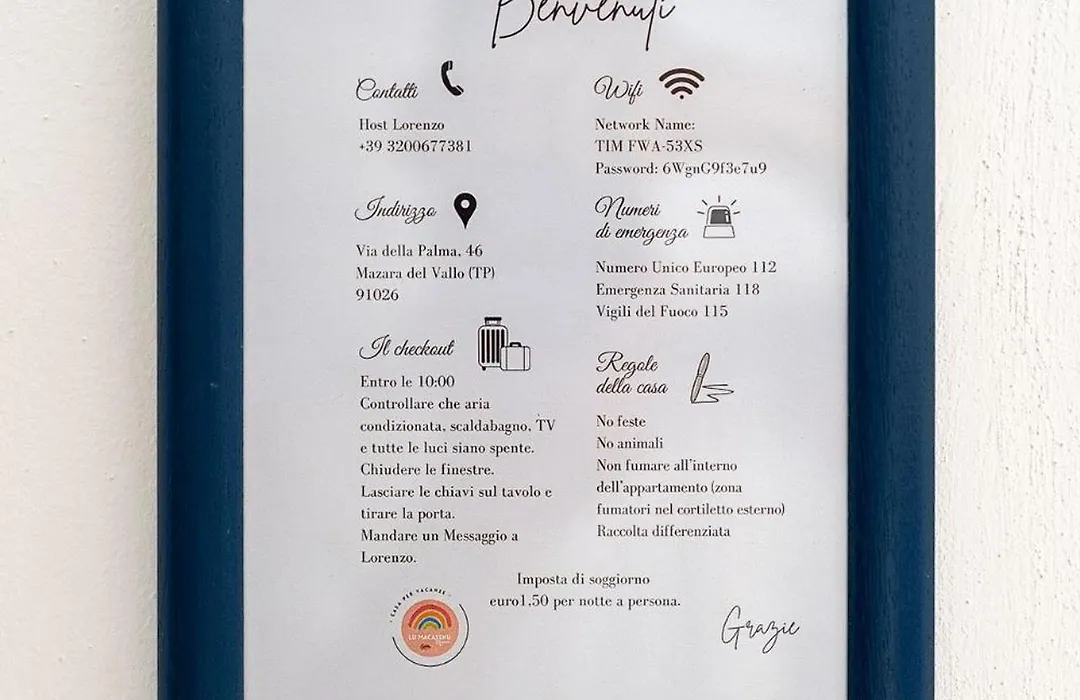 Benvenuti
Contatti
Host Lorenzo
+39 3200677381
Indirizzo
Via della Palma, 46
Mazara del Vallo (TP)
91026
Il checkout
Entro le 10:00
Controllare che aria
condizionata, scaldabagno, TV
e tutte le luci siano spente.
Chiudere le finestre.
Lasciare le chiavi sul tavolo e
tirare la porta.
Mandare un Messaggio a
Lorenzo.
Wifi
Network Name:
TIM FWA-53XS
Password: 6WgnG9f3e7u9
Numeri
di emergenza
Numero Unico Europeo 112
Emergenza Sanitaria 118
Vigili del Fuoco 115
Regole
della casa
No feste
No animali
Non fumare all'interno
dell'appartamento (zona
fumatori nel cortiletto esterno)
Raccolta differenziata
Imposta di soggiorno
euro1,50 per notte a persona.
CASA PER VACANZE
LU MACASENU
Grazie